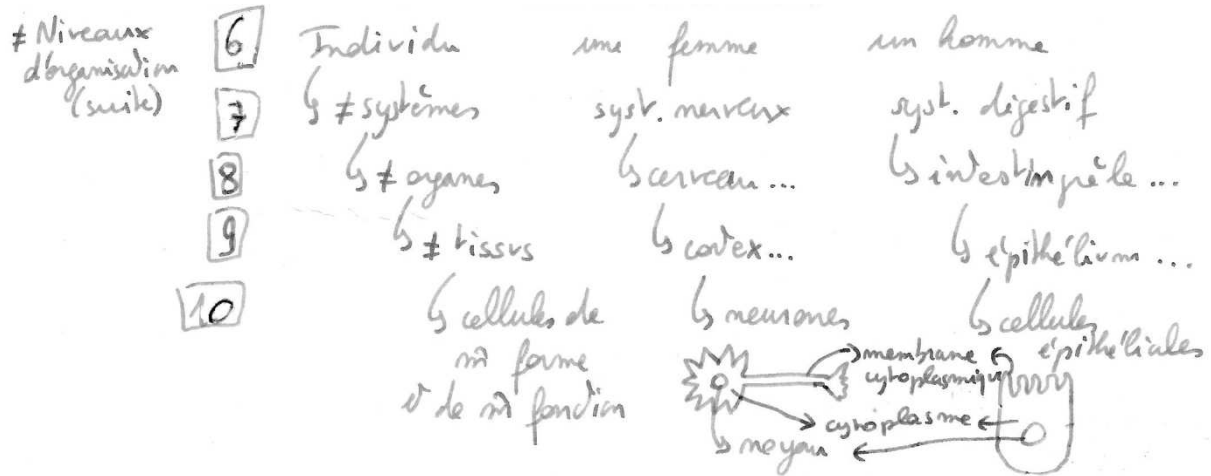 ≠ Niveaux d'organisation (suite)
6 Individu une femme un homme
7 ↳ ≠ systèmes syst. nerveux syst. digestif
8 ↳ ≠ organes ↳ cerveau... ↳ intestin grêle...
9 ↳ ≠ tissus ↳ cortex... ↳ épithélium...
10 ↳ cellules de ↳ neurones ↳ cellules
m̂ forme épithéliales
et de m̂ fonction
membrane
cytoplasmique
cytoplasme
noyau